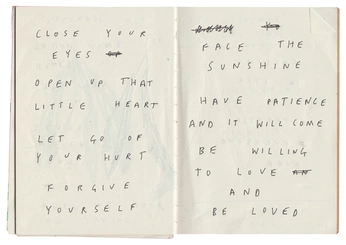 CLOSE YOUR
EYES
OPEN UP THAT
LITTLE HEART
LET GO OF
YOUR HURT
FORGIVE
YOURSELF
FACE THE
SUNSHINE
HAVE PATIENCE
AND IT WILL COME
BE WILLING
TO LOVE
AND
BE LOVED